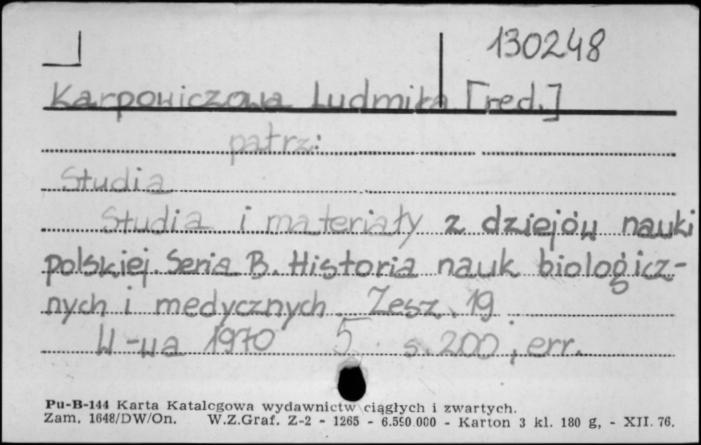 130248
Karpowiczowa Ludmiła [red.]
patrz:
Studia
Studia i materiały z dziejów nauki
polskiej. Seria B. Historia nauk biologicz-
nych i medycznych. Zesz. 19
W-wa 1970 5 s. 200, err.
Pu-B-144 Karta Katalogowa wydawnictw ciągłych i zwartych.
Zam. 1648/DW/On. W.Z.Graf. Z-2 - 1265 - 6.550 000 - Karton 3 kl. 180 g, - XII. 76.